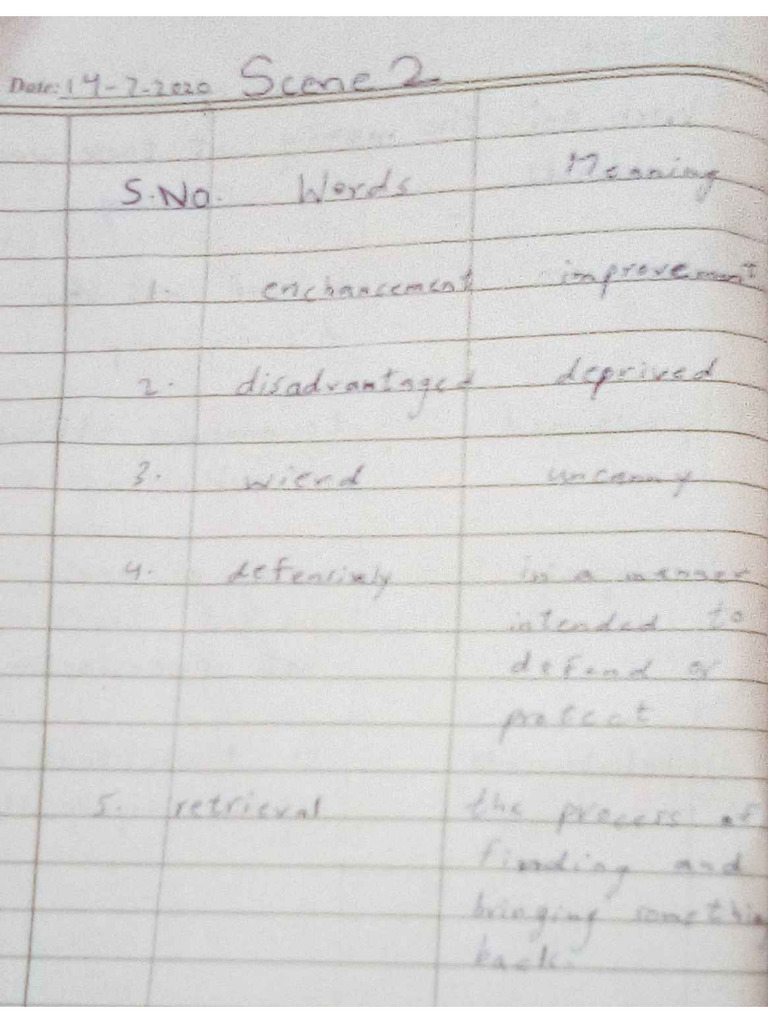 Date: 14-7-2020 Scene 2
S.No. Words Meaning
1. enchancement improvement
2. disadvantaged deprived
3. wierd uncanny
4. defensively in a manner
intended to
defend or
protect
5. retrieval the process of
finding and
bringing somethin
back.